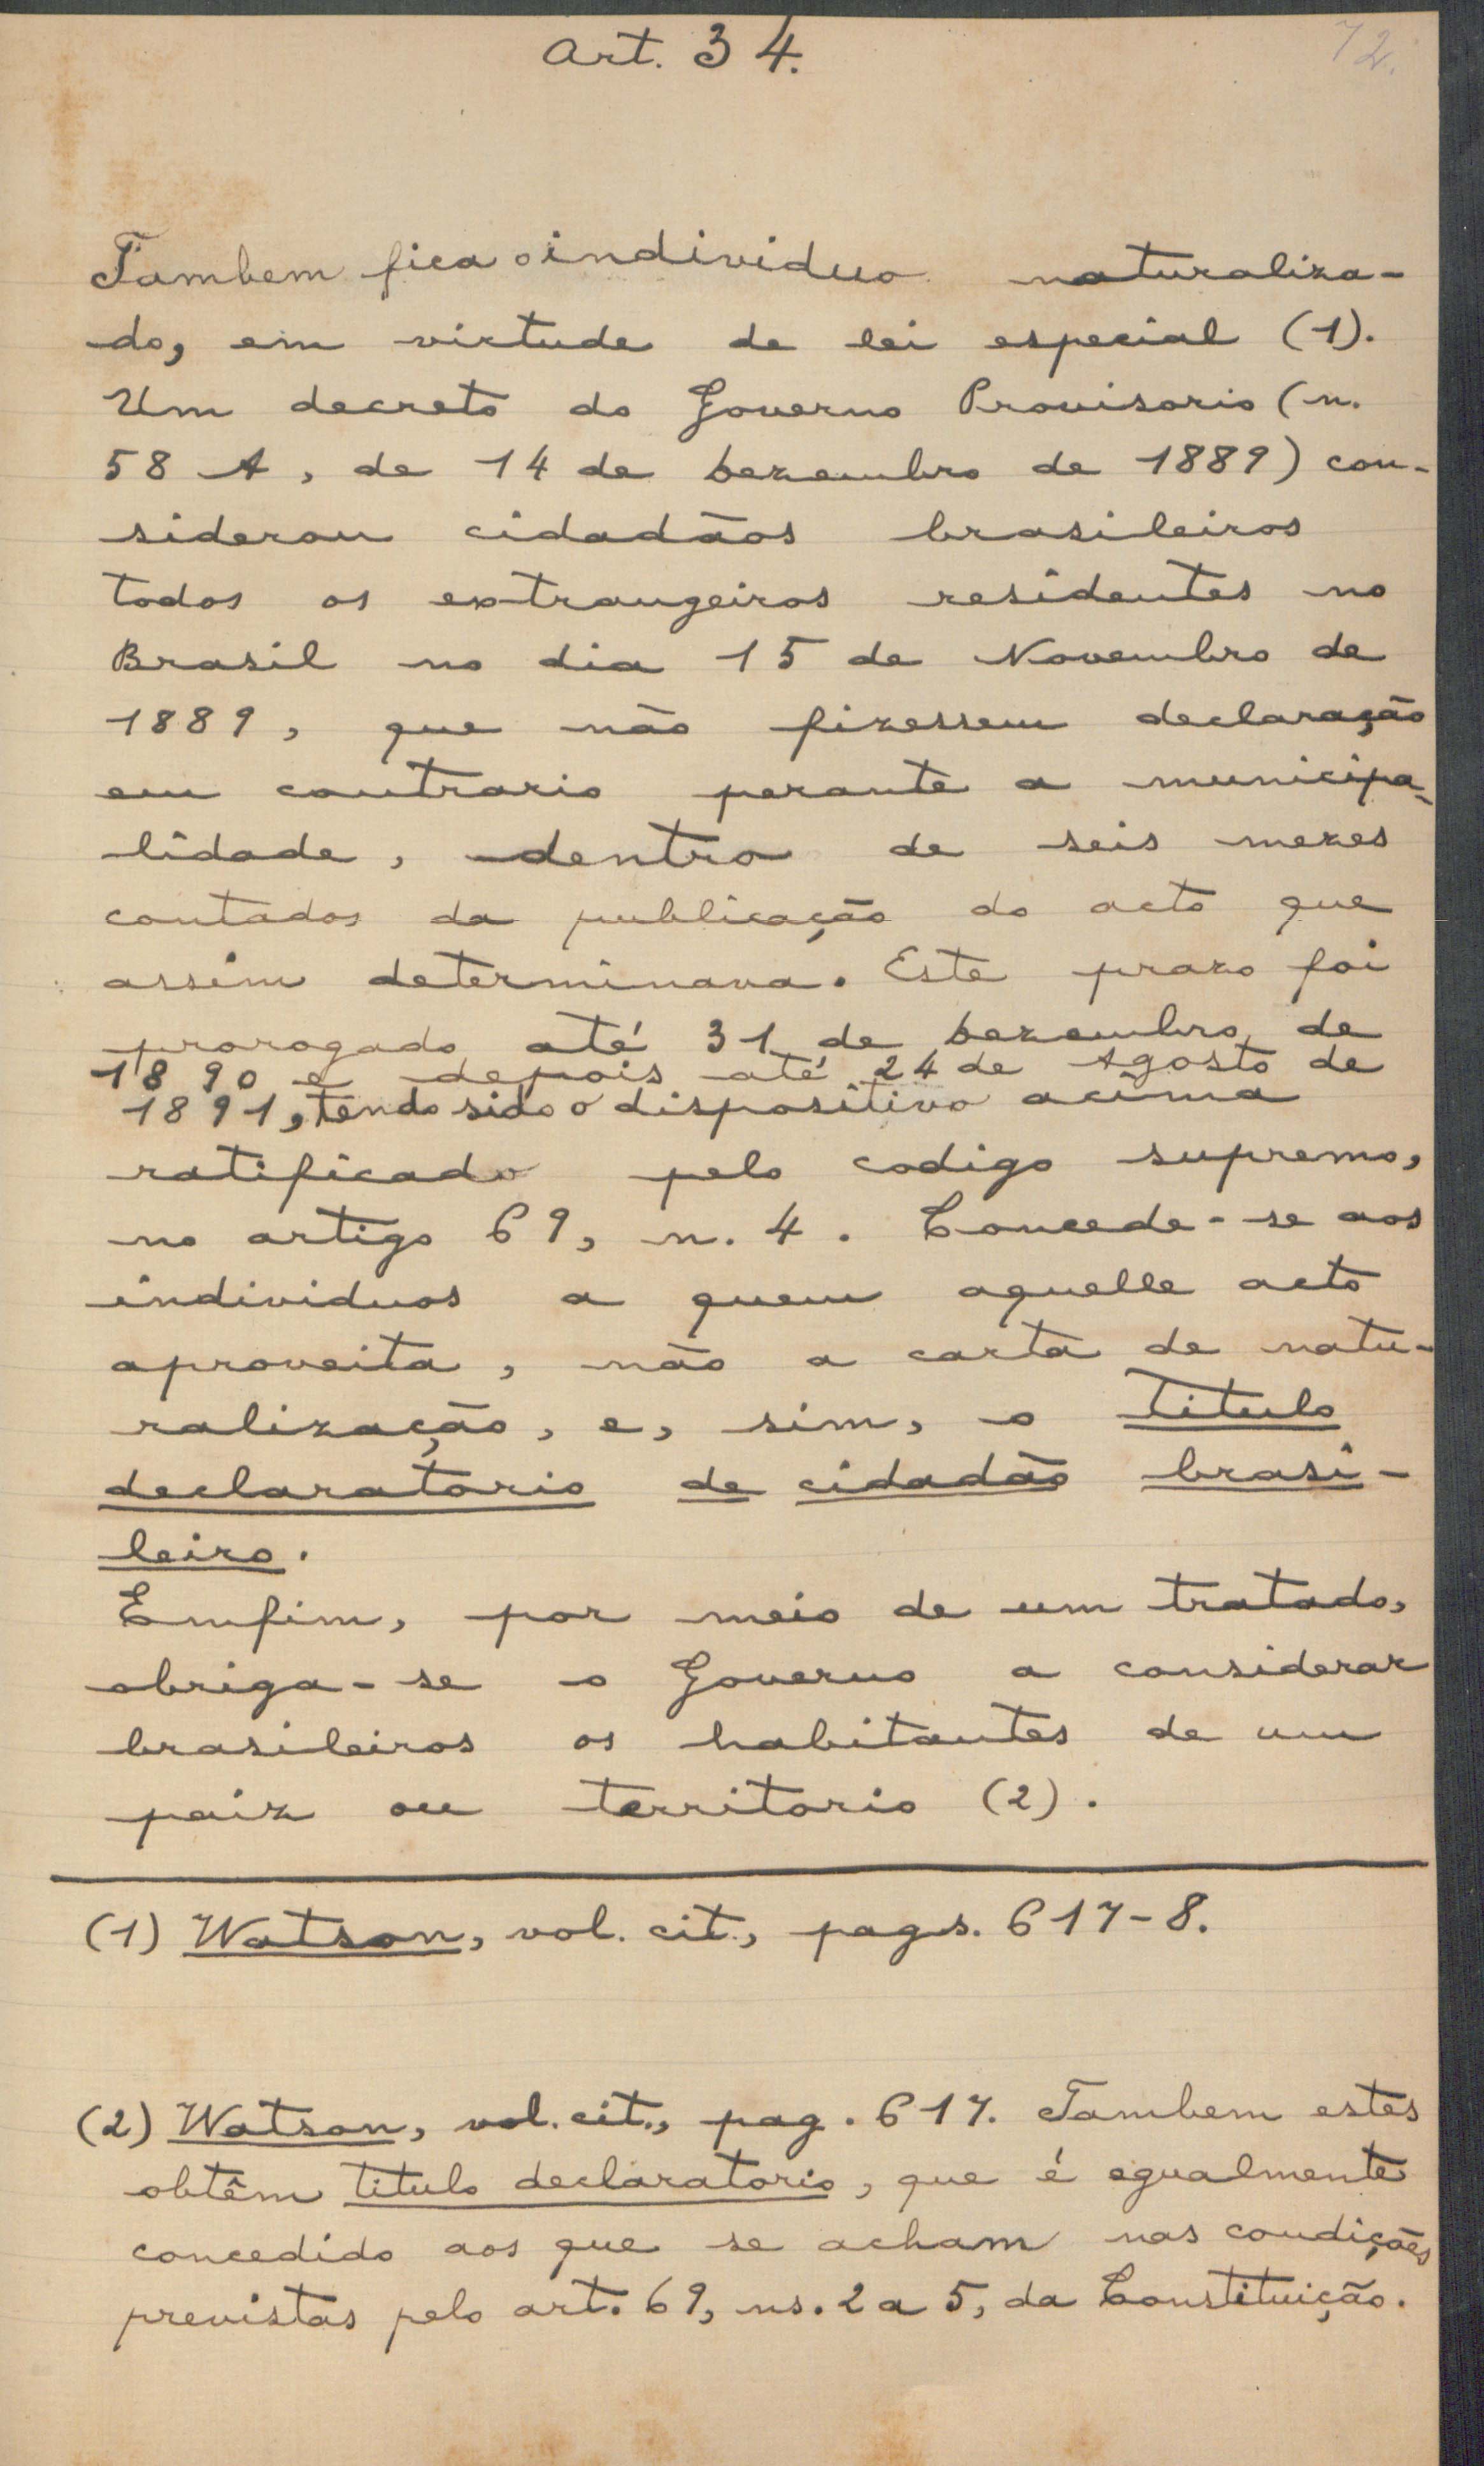 Art. 34.
72.
Tambem fica o individuo naturaliza-
do, em virtude de lei especial (1).
Um decreto do Governo Provisorio (n.
58 A, de 14 de Dezembro de 1889) con-
siderou cidadãos brasileiros
todos os extrangeiros residentes no
Brasil no dia 15 de Novembro de
1889, que não fizessem declaração
em contrario perante a municipa-
lidade, dentro de seis mezes
contados da publicação do acto que
assim determinava. Este prazo foi
prorogado até 31 de Dezembro de
1890 e depois até 24 de Agosto de
1891, tendo sido o dispositivo acima
ratificado pelo codigo supremo,
no artigo 69, n. 4. Concede-se aos
individuos a quem aquelle acto
aproveita, não a carta de natu-
ralização, e, sim, o titulo
declaratorio de cidadão brasi-
leiro.
Emfim, por meio de um tratado,
obriga-se o Governo a considerar
brasileiros os habitantes de um
paiz ou territorio (2).
(1) Watson, vol. cit., pags. 617-8.
(2) Watson, vol. cit., pag. 617. Tambem estes
obtêm titulo declaratorio, que é egualmente
concedido aos que se acham nas condições
previstas pelo art. 69, ns. 2 a 5, da Constituição.